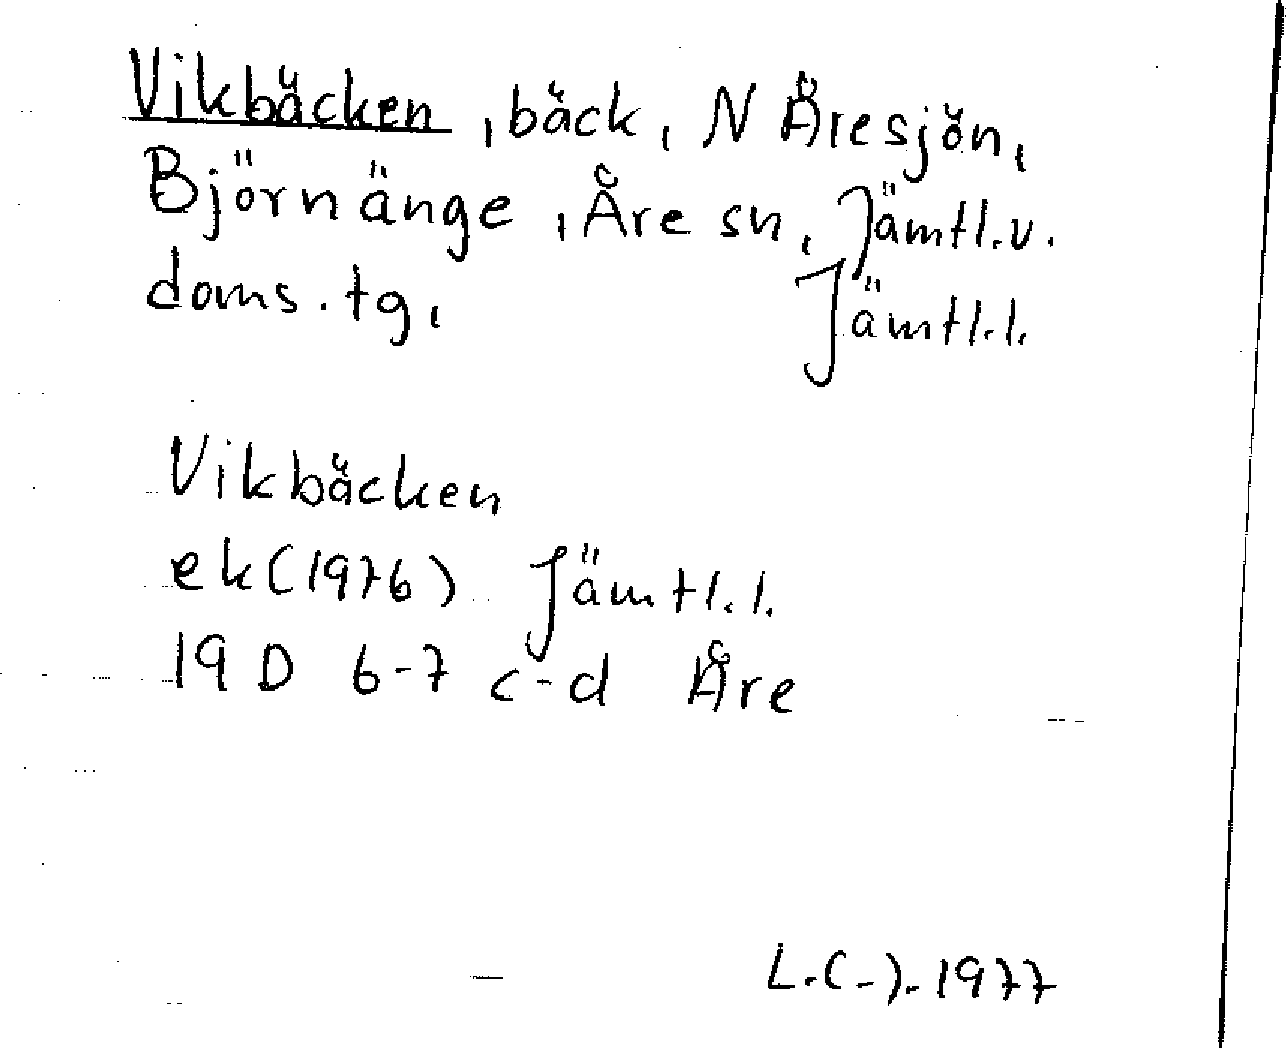 Vikbäcken, bäck, N Åresjön,
Björnänge, Åre sn, Jämtl.v.
doms.tg, Jämtl.l.
Vikbäcken
ek(1976) Jämtl.l.
19 D 6-7 c-d Åre
L.(-).1977